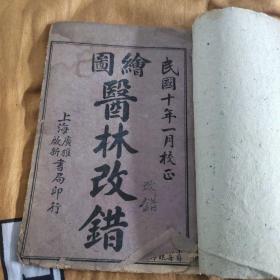 民國十年一月校正
繪圖
醫林改錯
改錯
上海廣雅啟新書局印行